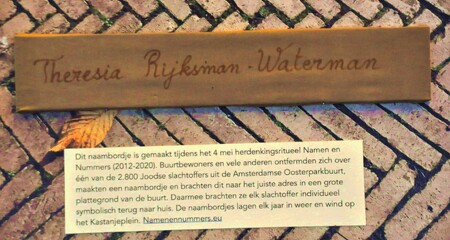 Theresia Rijksman-Waterman
Dit naambordje is gemaakt tijdens het 4 mei herdenkingsritueel Namen en
Nummers (2012-2020). Buurtbewoners en vele anderen ontfermden zich over
één van de 2.800 Joodse slachtoffers uit de Amsterdamse Oosterparkbuurt,
maakten een naambordje en brachten dit naar het juiste adres in een grote
plattegrond van de buurt. Daarmee brachten ze elk slachtoffer individueel
symbolisch terug naar huis. De naambordjes lagen elk jaar in weer en wind op
het Kastanjeplein. Namenennummers.eu